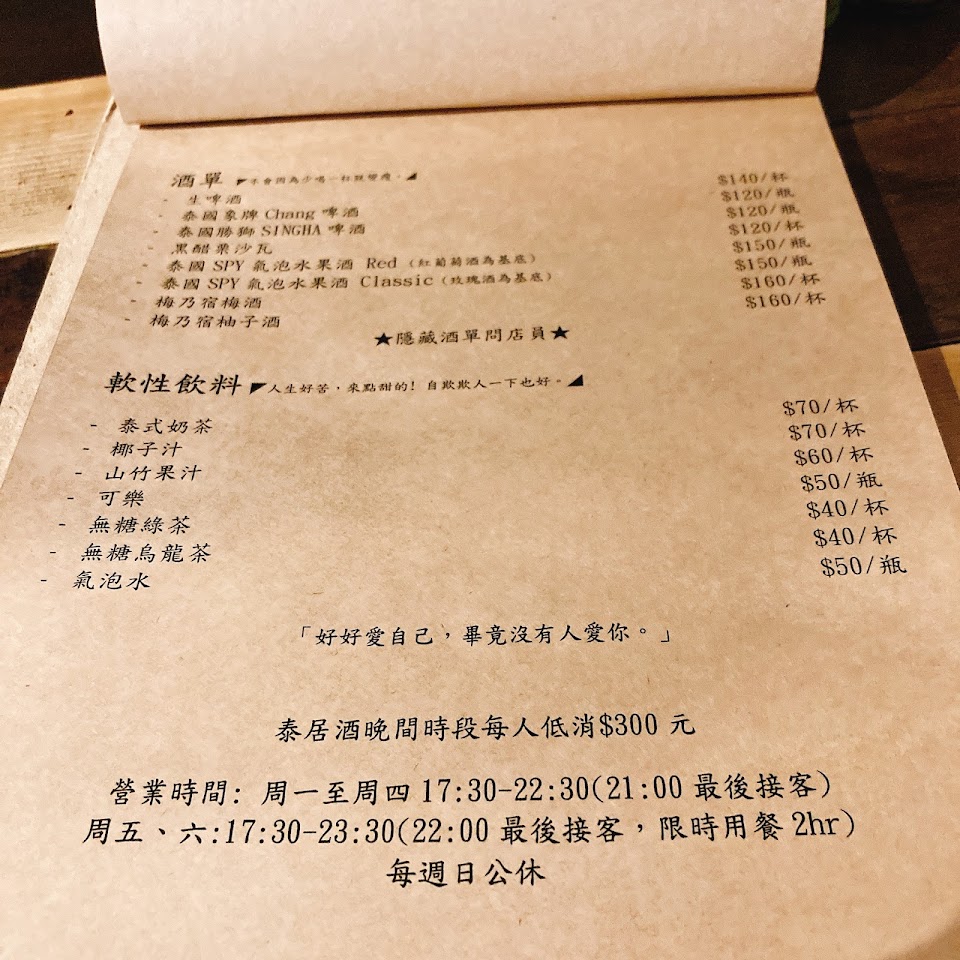 酒單 ◤不會因為少喝一杯就變瘦。◢
- 生啤酒 $140/杯
- 泰國象牌 Chang 啤酒 $120/瓶
- 泰國勝獅 SINGHA 啤酒 $120/瓶
- 黑醋栗沙瓦 $120/杯
- 泰國 SPY 氣泡水果酒 Red (紅葡萄酒為基底) $150/瓶
- 泰國 SPY 氣泡水果酒 Classic (玫瑰酒為基底) $150/瓶
- 梅乃宿梅酒 $160/杯
- 梅乃宿柚子酒 $160/杯
★隱藏酒單問店員★
軟性飲料 ◤人生好苦,來點甜的! 自欺欺人一下也好。◢
- 泰式奶茶 $70/杯
- 椰子汁 $70/杯
- 山竹果汁 $60/杯
- 可樂 $50/瓶
- 無糖綠茶 $40/杯
- 無糖烏龍茶 $40/杯
- 氣泡水 $50/瓶
「好好愛自己,畢竟沒有人愛你。」
泰居酒晚間時段每人低消$300 元
營業時間: 周一至周四 17:30-22:30(21:00 最後接客)
周五、六:17:30-23:30(22:00 最後接客,限時用餐 2hr)
每週日公休